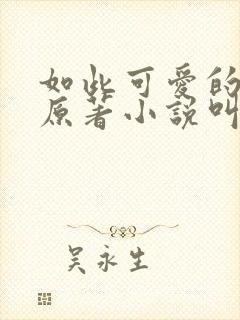 如此可愛的
原著小説叫
吴永生